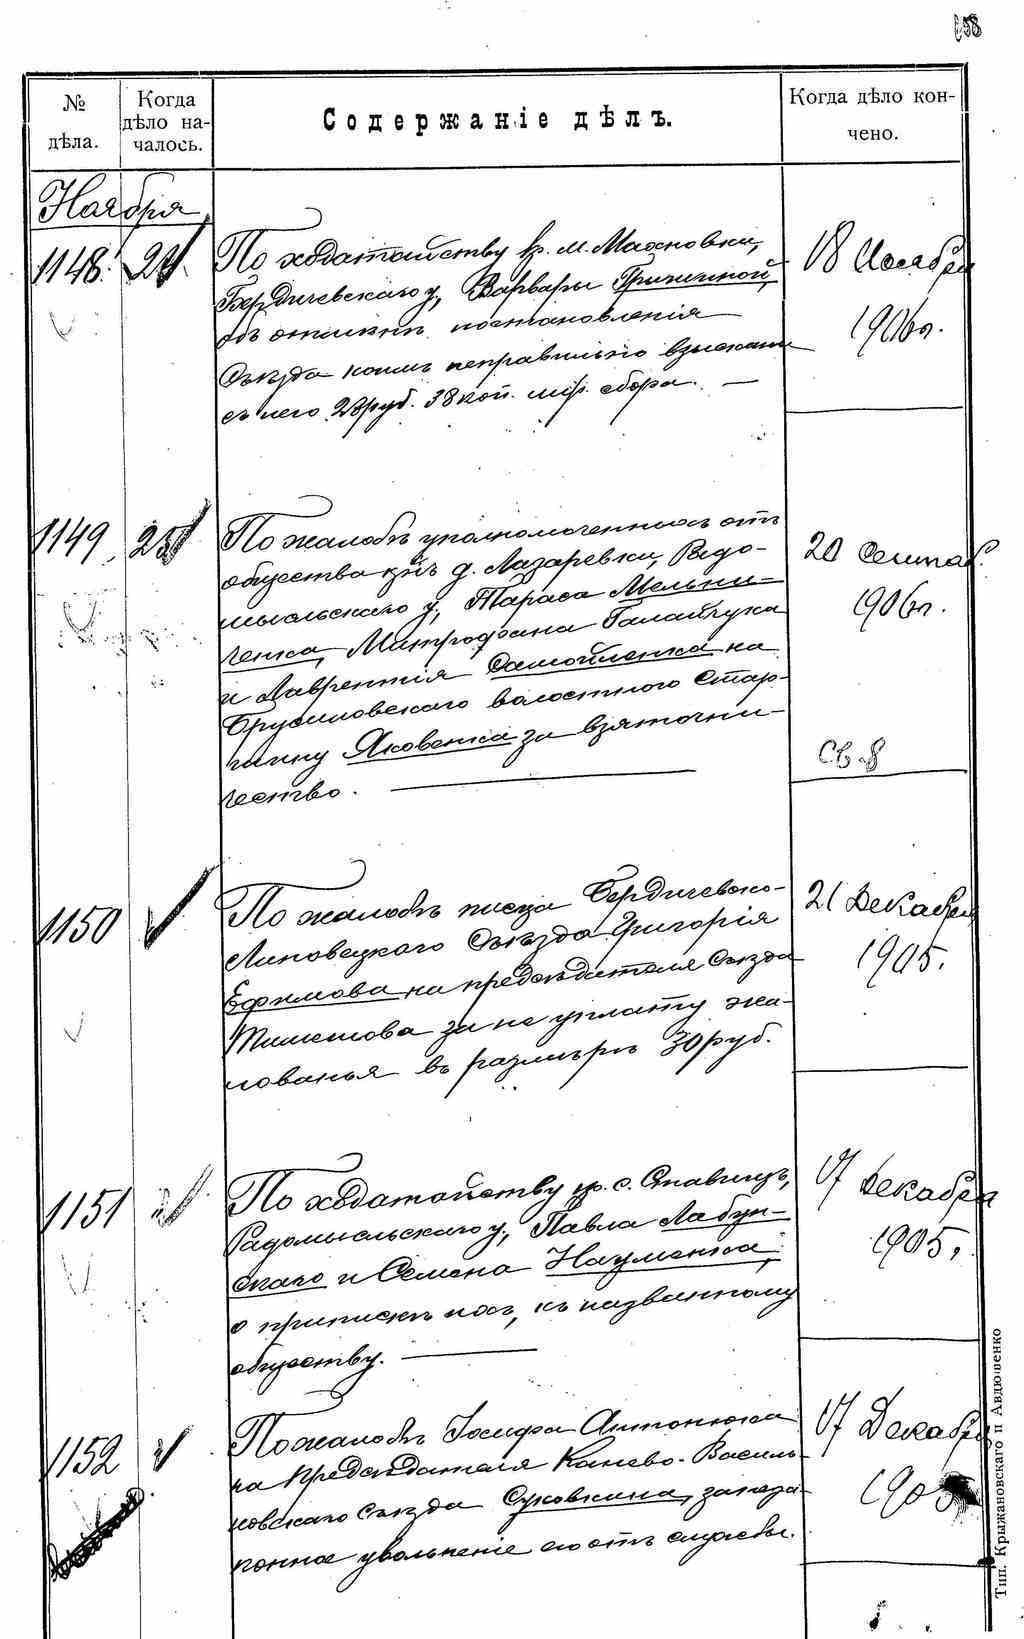 158
№ дѣла.
Когда дѣло началось.
Содержаніе дѣлъ.
Когда дѣло кончено.
Ноября
1148. 24.
По ходатайству кр. м. Махновки,
Бердичевскаго у., Варвары
объ отмѣнѣ постановленія
Съѣзда коимъ неправильно взыскано
съ него 28 руб. 38 коп. мір. сбора. —
18 Ноября
1906 г.
1149 25
По жалобѣ уполномоченныхъ отъ
общества кр-нъ д. Лазаревки, Радо-
мысльскаго у., Тараса Мельни-
ченка, Митрофана Галайчука
и Лаврентія Самойленка на
Брусиловскаго волостного Стар-
шину Яковенка за взяточни-
чество. —
20 Сентяб.
1906 г.
Св. 8
1150
По жалобѣ писца Бердичевско-
Липовецкаго Съѣзда Григорія
Ефимова на предсѣдателя Съѣзда
за не уплату жа-
лованья въ размѣрѣ 30 руб.
21 Декабря
1905.
1151
По ходатайству кр. с. Ставищъ,
Радомысльскаго у., Павла Лабун-
скаго и Семена Науменка,
о припискѣ ихъ, къ названному
обществу. —
17 Декабря
1905 г.
1152
По жалобѣ Іосифа Антонюка
на предсѣдателя Канево-Василь-
ковскаго Съѣзда Суковкина, за неза-
конное увольненіе его отъ службы.
17 Декабря
1905
Тип. Крыжановскаго и Авдюшенко